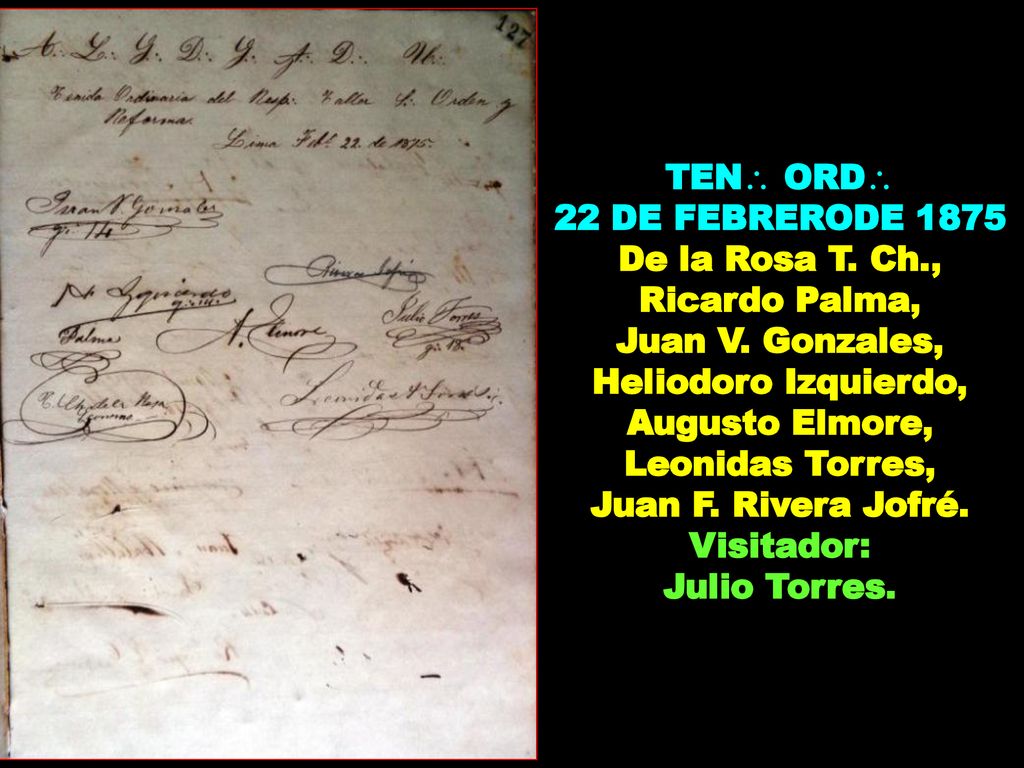 127
A∴ L∴ G∴ D∴ G∴ A∴ D∴ U∴
Tenida Ordinaria del Resp∴ Taller S∴ Orden y
Reforma.
Lima Feb. 22 de 1875.
Juan V. Gonzales
gr. 14
Rivera Jofré
H. Yzquierdo
gr. 14.
Palma
A. Elmore
Julio Torres
gr. 18.
T. Ch. de la Rosa
Leonidas
TEN∴ ORD∴
22 DE FEBRERODE 1875
De la Rosa T. Ch.,
Ricardo Palma,
Juan V. Gonzales,
Heliodoro Izquierdo,
Augusto Elmore,
Leonidas Torres,
Juan F. Rivera Jofré.
Visitador:
Julio Torres.